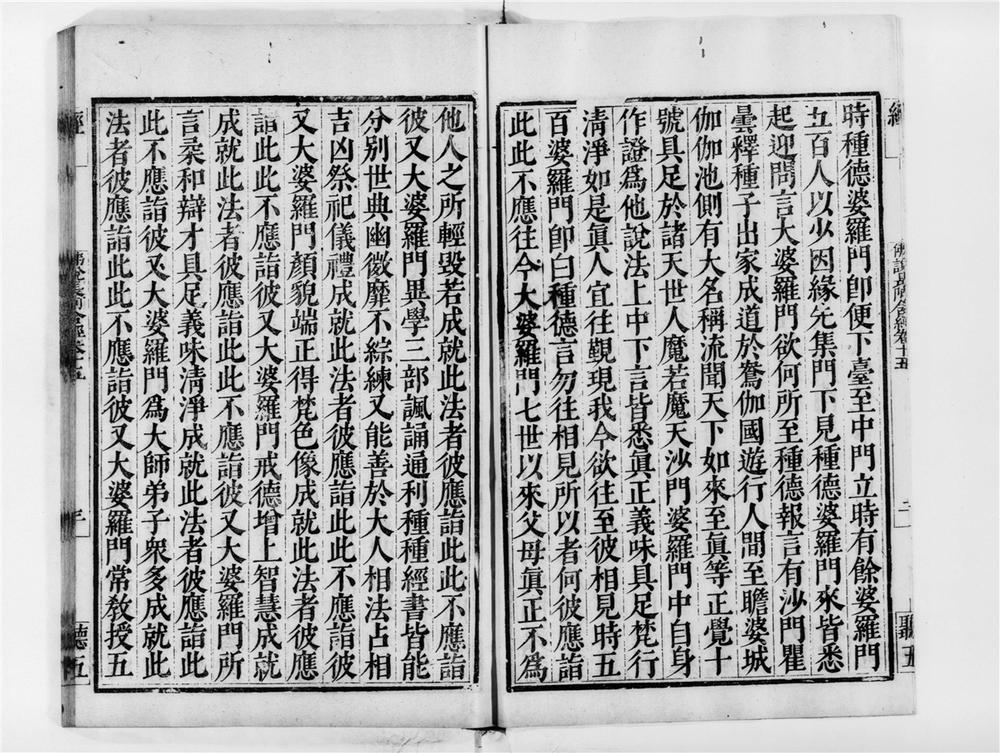 經 佛說長阿含經卷十五 二 聽五
時種德婆羅門卽便下臺至中門立時有餘婆羅門
五百人以少因緣先集門下見種德婆羅門來皆悉
起迎問言大婆羅門欲何所至種德報言有沙門瞿
曇釋種子出家成道於鴦伽國遊行人間至瞻婆城
伽伽池側有大名稱流聞天下如來至眞等正覺十
號具足於諸天世人魔若魔天沙門婆羅門中自身
作證爲他說法上中下言皆悉眞正義味具足梵行
淸淨如是眞人宜往覲現我今欲往至彼相見時五
百婆羅門卽白種德言勿往相見所以者何彼應詣
此此不應往今大婆羅門七世以來父母眞正不爲
他人之所輕毀若成就此法者彼應詣此此不應詣
彼又大婆羅門異學三部諷誦通利種種經書皆能
分别世典幽微靡不綜練又能善於大人相法占相
吉凶祭祀儀禮成就此法者彼應詣此此不應詣彼
又大婆羅門顏貌端正得梵色像成就此法者彼應
詣此此不應詣彼又大婆羅門戒德增上智慧成就
成就此法者彼應詣此此不應詣彼又大婆羅門所
言柔和辯才具足義味淸淨成就此法者彼應詣此
此不應詣彼又大婆羅門爲大師弟子衆多成就此
法者彼應詣此此不應詣彼又大婆羅門常敎授五
經 佛說長阿含經卷十五 三 聽五